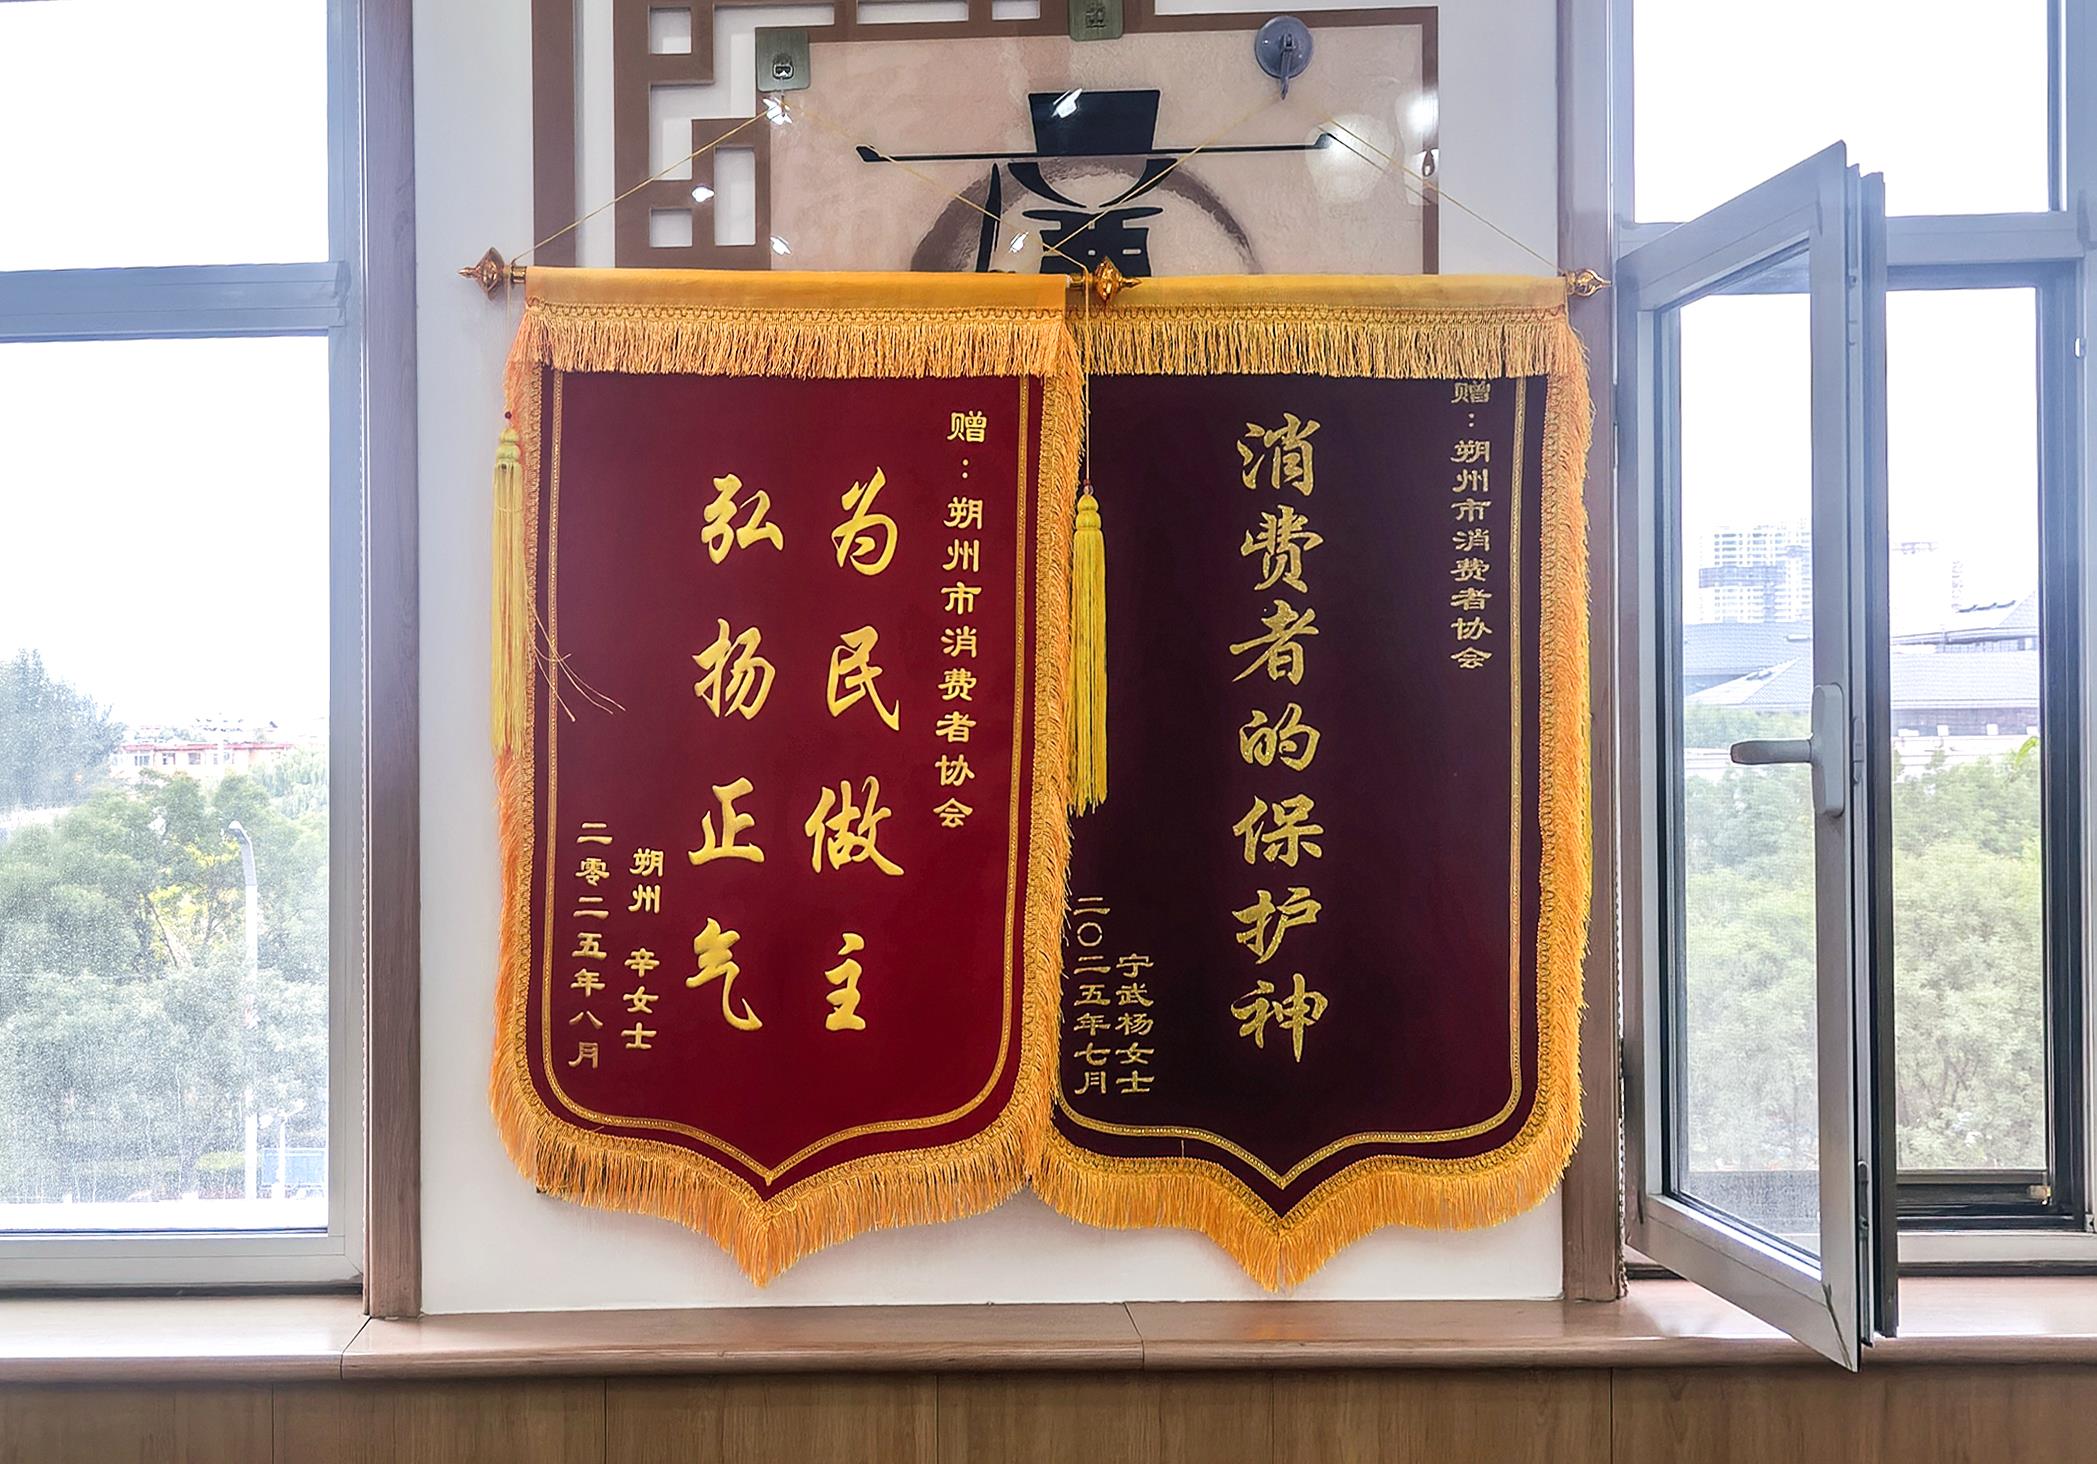 赠：朔州市消费者协会
为民做主
弘扬正气
朔州 辛女士
二零二五年八月
赠：朔州市消费者协会
消费者的保护神
宁武杨女士
二〇二五年七月